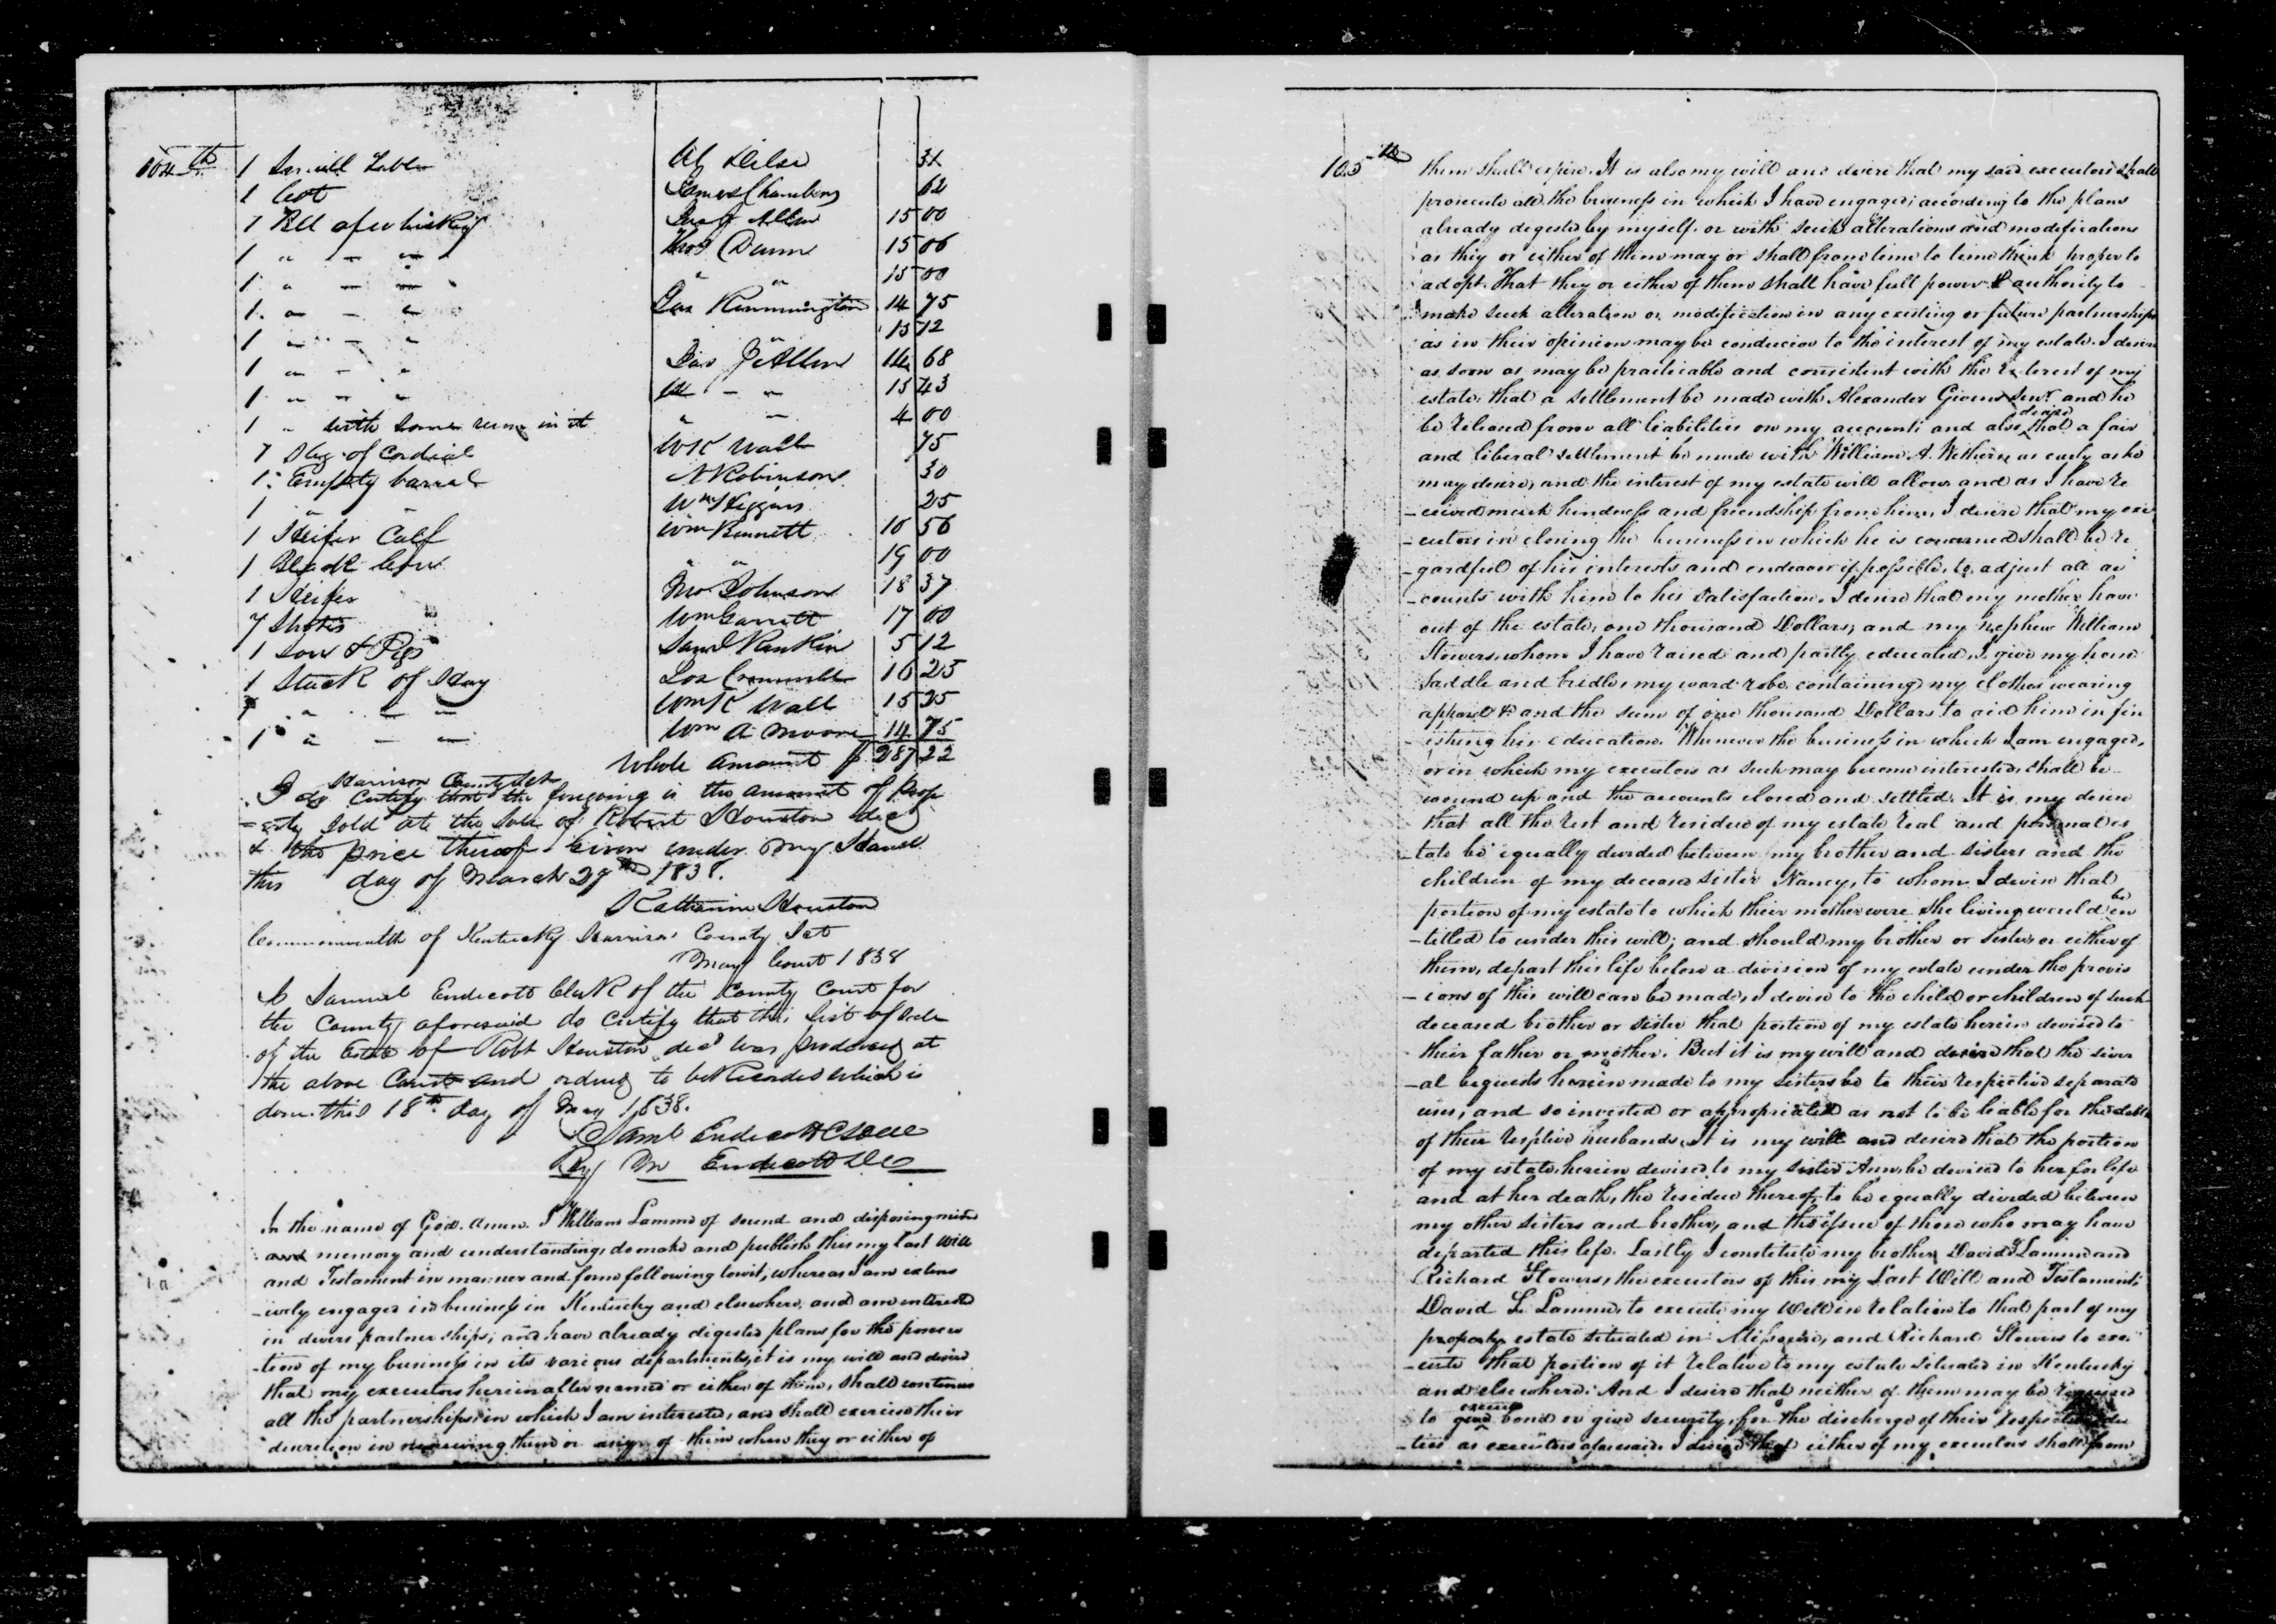 104th
1 Small Table 31
1 Cot James Chambers 62
1 Bll of whiskey Allen 15 00
1 " — " Thos Dunn 15 06
1 " — " " " 15 00
1 " — " Jas Remmington 14 75
1 " — " " 15 12
1 " — " Allen 14 68
1 " — " — " 15 43
1 " with some rum in it " — 4 00
7 of Cordial W K Wall 75
1 Empty barrel N Robinson 30
1 " Wm Higgins 25
1 Heifer Calf Wm Bennett 10 56
1 Black Cow " " 19 00
1 Heifer Jno Johnson 18 37
7 Shotes Wm Garrett 17 00
1 Sow & Pigs Saml Rankin 5 12
1 Stack of Hay 16 25
1 " — — Wm K Wall 15 25
1 " — — Wm A Moore 14 75
Whole amount $ 287 22
Harrison County Sct
I do Certify that the foregoing is the amount of prop
=erty sold at the Sale of Robert Houston decd
& the price thereof Given under my Hand
this day of March 29th 1838.
Katharine Houston
Commonwealth of Kentucky Harrison County Sct
May Court 1838
I Samuel Endicott Clerk of the County Court for
the County aforesaid do Certify that this list of Sale
of the Estate of Robt Houston decd was produced at
the above Court and ordered to be Recorded which is
done this 18th day of May 1838.
Saml Endicott
By Endicott DC
In the name of God. Amen. I William Lamme of sound and disposing mind
and memory and understanding, do make and publish this my last Will
and Testament in manner and form following towit, whereas I am extens
-ively engaged in business in Kentucky and elsewhere, and am interested
in divers partnerships, and have already digested plans for the prosecu
-tion of my business in its various departments, it is my will and desire
that my executors hereinafter named or either of them, shall continue
all the partnerships in which I am interested, and shall exercise their
discretion in renewing them or any of them when they or either of
105th
them shall expire. It is also my will and desire that my said executors shall
prosecute all the business in which I have engaged; according to the plans
already digested by myself. or with such alterations and modifications
as they or either of them may or shall from time to time think proper to
adopt. That they or either of them shall have full power & authority to
make such alteration or modification in any existing or future partnerships
as in their opinion may be conducive to the interest of my estate. I desire
as soon as may be practicable and consistent with the interest of my
estate, that a settlement be made with Alexander Givens Senr. and he
be released from all liabilities on my accounts and also desire that a fair
and liberal settlement be made with William A. Withers, as early as he
may desire, and the interest of my estate will allow and as I have re
-ceived much kindness and friendship from him, I desire that my exe
-cutors in closing the business in which he is concerned shall be re
-gardful of his interests and endeavor if possible, to adjust all ac
-counts with him to his satisfaction. I desire that my mother have
out of the estate, one thousand Dollars, and my nephew William
Stowers, whom I have raised and partly educated, I give my horse
saddle and bridle, my ward robe containing my clothes wearing
apparel &c and the sum of one thousand Dollars to aid him in fin
-ishing his education. Whenever the business in which I am engaged,
or in which my executors as such may become interested, shall be
wound up and the accounts closed and settled. It is my desire
that all the rest and residue of my estate real and personal es
-tate be equally divided between my brother and sisters and the
children of my deceased sister Nancy, to whom I devise that
portion of my estate to which their mother were she living would be en
-titled to under this will; and should my brother or sisters or either of
them, depart this life before a division of my estate under the provis
-ions of this will can be made, I devise to the child or children of such
deceased brother or sister that portion of my estate herein devised to
their father or mother. But it is my will and desire that the sever
-al bequests herein made to my sisters be to their respective separate
uses, and so invested or appropriated as not to be liable for the debts
of their resptive husbands. It is my will and desire that the portion
of my estate, herein devised to my sister Ann, be devised to her for life
and at her death, the residue thereof, to be equally divided between
my other sisters and brother, and the issue of those who may have
departed this life. Lastly I constitute my brother David L Lamme and
Richard Stowers, the executors of this my Last Will and Testament;
David L Lamme, to execute my Will in relation to that part of my
property estate situated in Missouri, and Richard Stowers to exe
-cute that portion of it relative to my estate situated in Kentucky
and elsewhere. And I desire that neither of them may be required
to give execute bond or give security, for the discharge of their respective du
-ties as executors aforesaid. I desire that either of my executors shall from